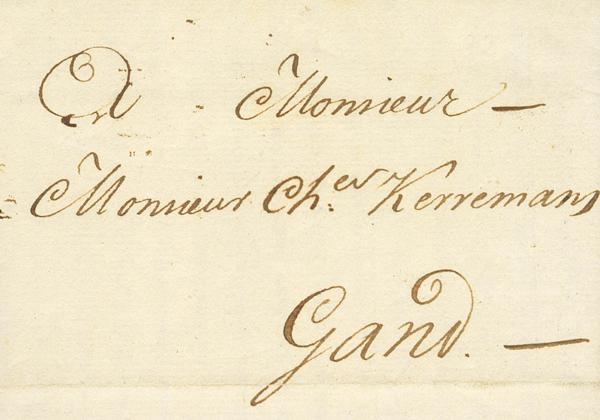 A Monsieur —
Monsieur Ch.er Kerremans
Gand. —